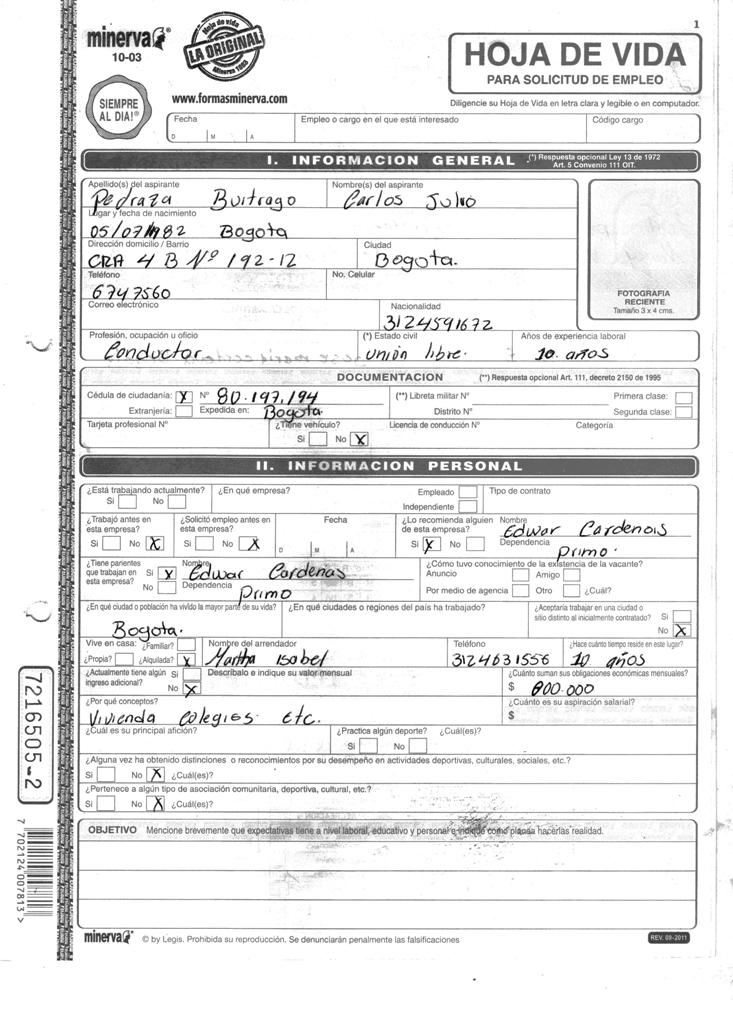 1
minerva®
10-03
Hoja de vida
LA ORIGINAL
Minerva 1003
HOJA DE VIDA
PARA SOLICITUD DE EMPLEO
SIEMPRE
AL DIA!®
www.formasminerva.com
Diligencie su Hoja de Vida en letra clara y legible o en computador.
Fecha Empleo o cargo en el que está interesado Código cargo
D M A
I. INFORMACION GENERAL (*) Respuesta opcional Ley 13 de 1972
Art. 5 Convenio 111 OIT.
Apellido(s) del aspirante Nombre(s) del aspirante
Pedraza Buitrago Carlos Julio
Lugar y fecha de nacimiento
05/07/1982 Bogota
Dirección domicilio / Barrio Ciudad
CRA 4 B Nº 192-12 Bogota.
Teléfono No. Celular
6747560
FOTOGRAFIA
RECIENTE
Tamaño 3 x 4 cms.
Correo electrónico Nacionalidad
3124591672
Profesión, ocupación u oficio (*) Estado civil Años de experiencia laboral
Conductor union libre. 10. años
DOCUMENTACION (**) Respuesta opcional Art. 111, decreto 2150 de 1995
Cédula de ciudadanía: X Nº 80.197.194 (**) Libreta militar Nº Primera clase:
Extranjería: Expedida en: Bogota. Distrito Nº Segunda clase:
Tarjeta profesional Nº ¿Tiene vehículo? Licencia de conducción Nº Categoría
Si No X
II. INFORMACION PERSONAL
¿Está trabajando actualmente? ¿En qué empresa? Empleado Tipo de contrato
Si No Independiente
¿Trabajó antes en esta empresa? ¿Solicitó empleo antes en esta empresa? Fecha ¿Lo recomienda alguien de esta empresa? Nombre Edwar Cardenas
Si No X Si No X D M A Si X No Dependencia Primo.
¿Tiene parientes que trabajan en esta empresa? Si X No Nombre Edwar Cardenas ¿Cómo tuvo conocimiento de la existencia de la vacante?
Anuncio Amigo
Dependencia Primo Por medio de agencia Otro ¿Cuál?
¿En qué ciudad o población ha vivido la mayor parte de su vida? ¿En qué ciudades o regiones del país ha trabajado? ¿Aceptaría trabajar en una ciudad o sitio distinto al inicialmente contratado? Si
Bogota. No X
Vive en casa: ¿Familiar? Nombre del arrendador Teléfono ¿Hace cuánto tiempo reside en este lugar?
¿Propia? ¿Alquilada? X Martha Isobel 3124631556 10 años
¿Actualmente tiene algún ingreso adicional? Si No X Descríbalo e indique su valor mensual ¿Cuánto suman sus obligaciones económicas mensuales?
$ 800.000
¿Por qué conceptos? ¿Cuánto es su aspiración salarial?
Vivienda colegios. Etc. $
¿Cuál es su principal afición? ¿Practica algún deporte? ¿Cuál(es)?
Si No
¿Alguna vez ha obtenido distinciones o reconocimientos por su desempeño en actividades deportivas, culturales, sociales, etc.?
Si No X ¿Cuál(es)?
¿Pertenece a algún tipo de asociación comunitaria, deportiva, cultural, etc.?
Si No X ¿Cuál(es)?
OBJETIVO Mencione brevemente que expectativas tiene a nivel laboral, educativo y personal e indique como planea hacerlas realidad.
minerva® © by Legis. Prohibida su reproducción. Se denunciarán penalmente las falsificaciones REV. 09-2011
7216505-2
7 702124 007813 >